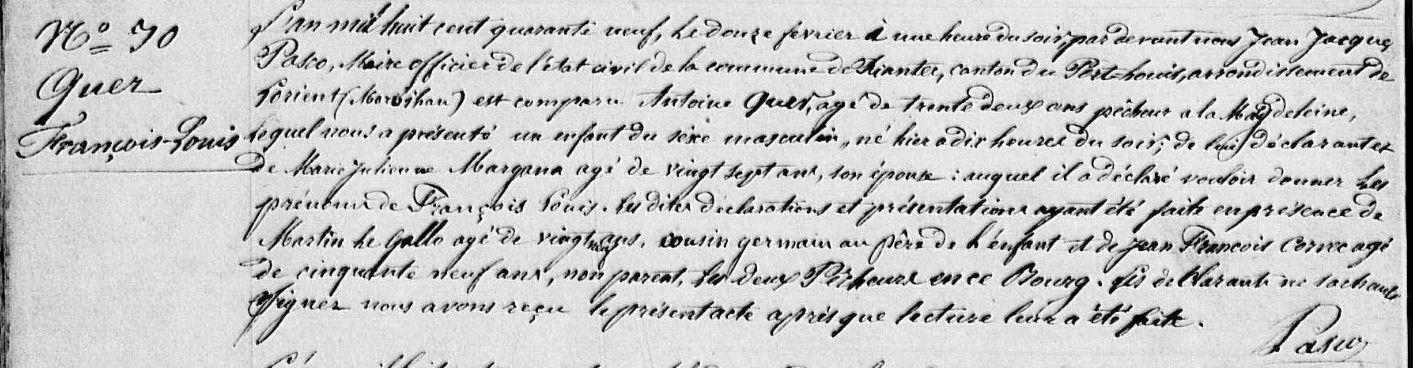 N° 30
Quer
François-Louis
L'an mil huit cent quarante neuf, le douze février à une heure du soir, par devant nous Jean Jacques
Pasco, Maire officier de l'état civil de la commune de Riantec, canton du Port-Louis, arrondissement de
Lorient (Morbihan) est comparu Antoine Quer, agé de trente deux ans pêcheur a la Magdeleine,
lequel nous a présenté un enfant du sèxe masculin, né hier a dix heures du soir, de lui déclarant et
de Marie Julienne Margana agé de vingt sept ans, son épouse : auquel il a déclaré vouloir donner les
prénoms de François Louis. les dites déclarations et présentations ayant été faite en présence de
Martin le Gallo agé de vingt ans, cousin germain au père de l'enfant et de Jean François Correc agé
de cinquante neuf ans, non parent, les deux Pêcheurs en ce Bourg. les déclarants ne sachant
signer nous avons reçu le présent acte après que lecture leur a été faite.
Pasco